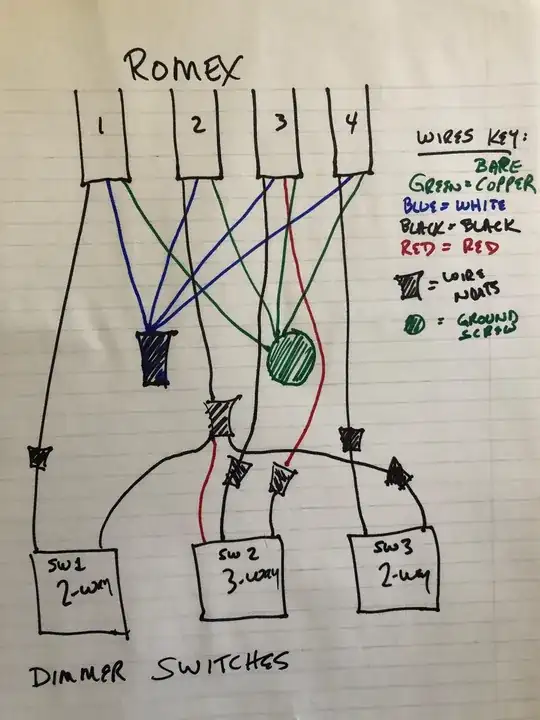 ROMEX
1 2 3 4
WIRES KEY:
BARE
GREEN = COPPER
BLUE = WHITE
BLACK = BLACK
RED = RED
= WIRE
NUTS
= GROUND
SCREW
SW1
2-WAY
SW2
3-WAY
SW3
2-WAY
DIMMER SWITCHES